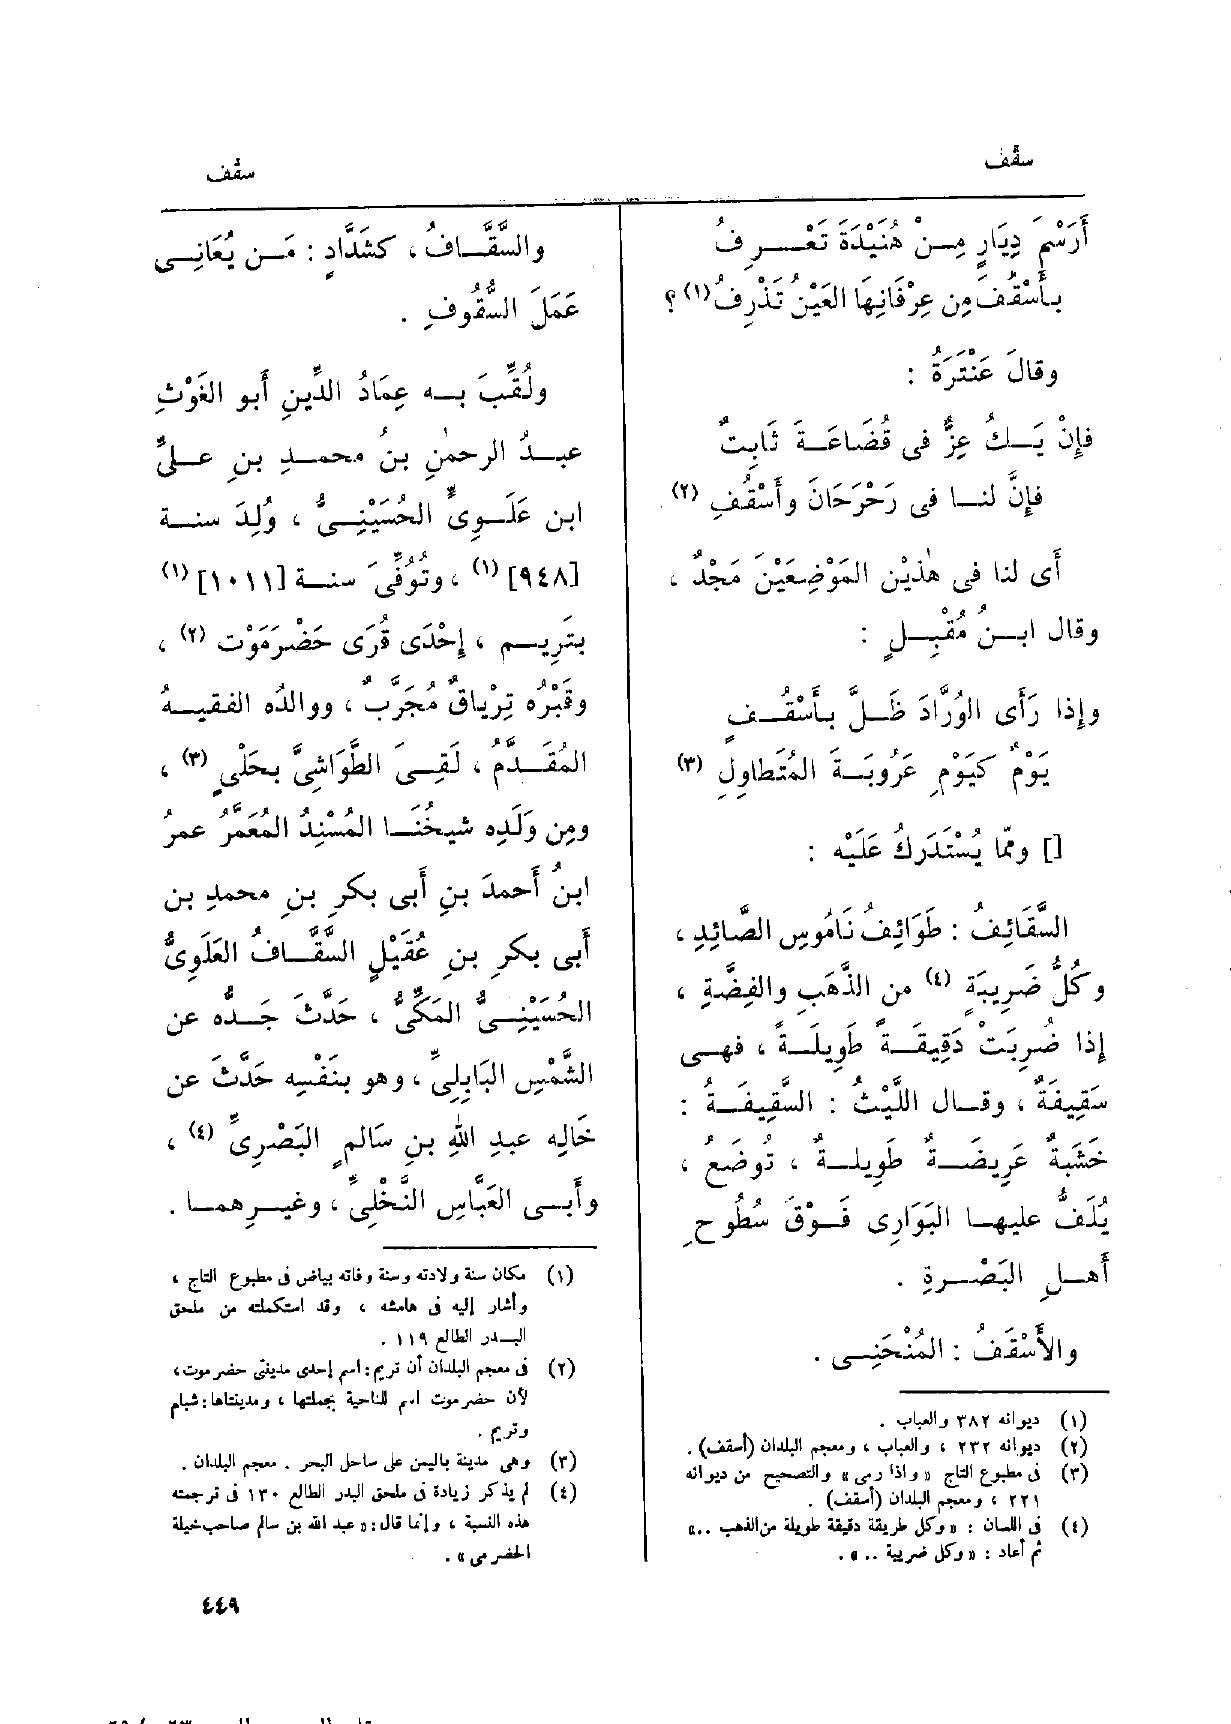 سقف
سقف
أَرَسْمَ دِيَارٍ مِنْ هُنَيْدَةَ تَعْرِفُ
بأَسْقُفَ مِن عِرْفَانِهَا العَيْنُ تَذْرِفُ (١) ؟
وقالَ عَنْتَرَةُ :
فإِنْ يَكُ عِزٌّ فى قُضَاعَةَ ثَابِتٌ
فإِنَّ لنا فى رَحْرَحَانَ وأَسْقُفِ (٢)
أى لنا فى هٰذيْن المَوْضِعَيْنِ مَجْدٌ ،
وقال ابنُ مُقْبِلٍ :
وإذا رَأَى الوُرَّادَ ظَلَّ بأَسْقُفٍ
يَوْمٌ كيَوْمِ عَرُوبَةَ المُتَطاوِلِ (٣)
[] وممّا يُسْتَدْرَكُ عَلَيْه :
السَّقَائِفُ : طَوَائِفُ نَامُوسِ الصَّائِدِ ،
وكُلُّ ضَرِيبَةٍ (٤) من الذَّهَبِ والفِضَّةِ ،
إذا ضُرِبَتْ دَقِيقَةً طَوِيلَةً ، فهى
سَقِيفَةٌ ، وقال اللَّيْثُ : السَّقِيفَةُ :
خَشَبةٌ عَرِيضَةٌ طَوِيلةٌ ، تُوضَعُ ،
يُلَفُّ عليها البَوَارِى فَوْقَ سُطُوحِ
أَهلِ البَصْرةِ .
والأَسْقَفُ : المُنْحَنِى .
(١) ديوانه ٣٨٢ والعباب .
(٢) ديوانه ٢٣٢ ، والعباب ، ومعجم البلدان (أسقف) .
(٣) فى مطبوع التاج « واذا رمى » والتصحيح من ديوانه
٢٢١ ، ومعجم البلدان (أسقف) .
(٤) فى اللسان : « وكل طريقة دقيقة طويلة من الذهب .. »
ثم أعاد : « وكل ضريبة .. » .
والسَّقَّافُ ، كشَدَّادٍ : مَن يُعَانِى
عَمَلَ السُّقُوفِ .
ولُقِّبَ به عِمَادُ الدِّينِ أبو الغَوْثِ
عبدُ الرحمٰنِ بنُ محمدِ بنِ علىِّ
ابنِ عَلَوِىٍّ الحُسَيْنِىُّ ، وُلِدَ سنة
[٩٤٨] (١) ، وتُوُفِّىَ سنة [١٠١١] (١)
بتَرِيم ، إِحْدَى قُرَى حَضْرَمَوْت (٢) ،
وقَبْرُه تِرْيَاقٌ مُجَرَّبٌ ، ووالدُه الفقيهُ
المُقَدَّمُ ، لَقِىَ الطَّوَاشِىَّ بحَلْىٍ (٣) ،
ومِن وَلَدِه شيخُنَا المُسْنِدُ المُعَمَّرُ عمرُ
ابنُ أَحمدَ بنِ أَبى بكرِ بنِ محمدِ بن
أَبى بكرِ بنِ عُقَيْلٍ السَّقَّافُ العَلَوِىُّ
الحُسَيْنِىُّ المَكِّىُّ ، حَدَّثَ جَدُّه عن
الشَّمْسِ البَابِلِىِّ ، وهو بنَفْسِه حَدَّثَ عن
خَالِه عبدِ اللهِ بنِ سَالِمٍ البَصْرِىِّ (٤) ،
وأَبى العَبَّاسِ النَّخْلِىِّ ، وغيرِهما .
(١) مكان سنة ولادته وسنة وفاته بياض فى مطبوع التاج ،
وأشار إليه فى هامشه ، وقد استكملته من ملحق
البدر الطالع ١١٩ .
(٢) فى معجم البلدان أن تريم : اسم إحدى مدينتى حضرموت ،
لأن حضرموت اسم للناحية بجملتها ، ومدينتاها : شبام
وتريم .
(٣) وهى مدينة باليمن على ساحل البحر . معجم البلدان .
(٤) لم يذكر زيادة فى ملحق البدر الطالع ١٣٠ فى ترجمته
هذه النسبة ، وإنما قال : « عبد الله بن سالم صاحب خيلة
الحضرمى » .
٤٤٩